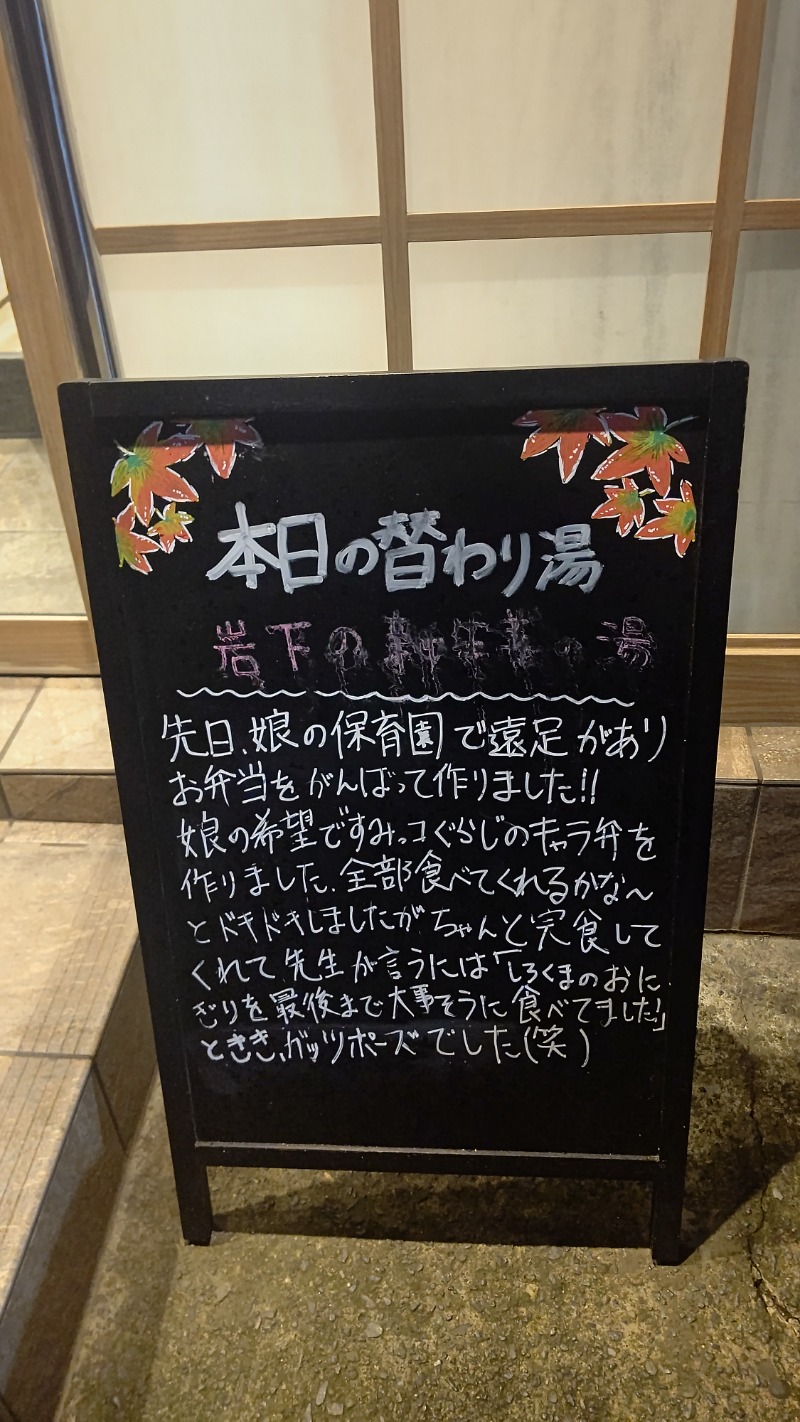 本日の替わり湯
岩下の新生姜の湯
先日、娘の保育園で遠足があり
お弁当をがんばって作りました!!
娘の希望ですみっコぐらしのキャラ弁を
作りました。全部食べてくれるかな～
とドキドキしましたがちゃんと完食して
くれて先生が言うには「しろくまのおに
ぎりを最後まで大事そうに食べてました!」
ときき、ガッツポーズでした(笑)